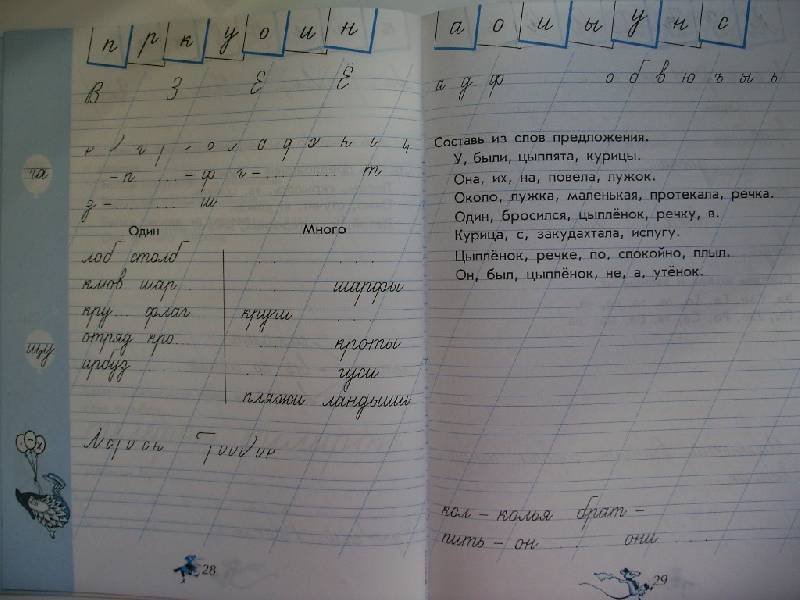 п р к у о и н
В З Е Ё
- п - ф г - т
з - ш
ща
Один Много
лоб столб
клюв шар шарфы
кру флаг круги
отряд кро кроты
арбуз гуси
щу
пляжи ландыши
28
а о и ы у н с
а д ф о б в ю ъ ы ь
Составь из слов предложения.
У, были, цыплята, курицы.
Она, их, на, повела, лужок.
Около, лужка, маленькая, протекала, речка.
Один, бросился, цыплёнок, речку, в.
Курица, с, закудахтала, испугу.
Цыплёнок, речке, по, спокойно, плыл.
Он, был, цыплёнок, не, а, утёнок.
кол – колья брат –
пить – он они
29